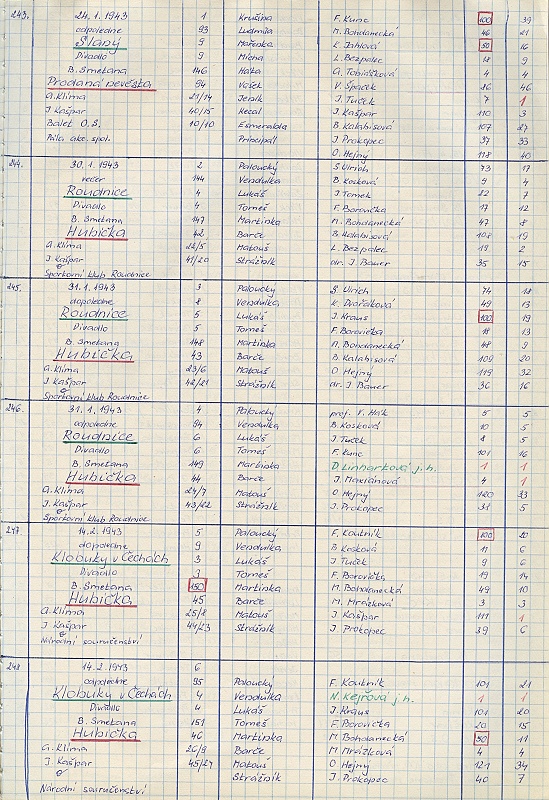 243. 24.1.1943 1 Krušina F. Kunc 100 39
odpoledne 93 Ludmila M. Bohdanecká 46 21
Slaný 9 Mařenka K. Jahlová 50 16
Divadlo 9 Mícha L. Bezpalec 18 9
B. Smetana 146 Háta A. Tobišková 4 4
Prodaná nevěsta 94 Vašek V. Špaček 26 46
A. Klíma 21/14 Jeník J. Tuček 7 1
J. Kašpar 40/15 Kecal J. Kašpar 110 3
Balet O.S. 10/10 Esmeralda B. Kalabisová 107 27
Pála akc. spol. Principál J. Prokopec 37 33
O. Hejný 118 40
244. 30.1.1943 2 Paloucký S. Ulrich 73 17
večer 144 Vendulka B. Kosková 9 4
Roudnice 4 Lukáš J. Tomek 22 7
Divadlo 4 Tomeš F. Borovička 17 12
B. Smetana 147 Martinka M. Bohdanecká 47 8
Hubička 42 Barče B. Kalabisová 108 19
A. Klíma 22/5 Matouš L. Bezpalec 19 2
J. Kašpar 41/20 Strážník dr. J. Bauer 35 15
Sportovní klub Roudnice
245. 31.1.1943 3 Paloucký S. Ulrich 74 18
dopoledne 8 Vendulka K. Dvořáková 49 13
Roudnice 5 Lukáš J. Kraus 100 19
Divadlo 5 Tomeš F. Borovička 18 13
B. Smetana 148 Martinka M. Bohdanecká 48 9
Hubička 43 Barče B. Kalabisová 109 20
A. Klíma 23/6 Matouš O. Hejný 119 32
J. Kašpar 42/21 Strážník dr. J. Bauer 36 16
Sportovní klub Roudnice
246. 31.1.1943 4 Paloucký prof. V. Hák 5 5
odpoledne 94 Vendulka B. Kosková 10 5
Roudnice 6 Lukáš J. Tuček 8 5
Divadlo 6 Tomeš F. Kunc 101 16
B. Smetana 149 Martinka D. Linhartková j.h. 1 1
Hubička 44 Barče J. Mariánová 4 1
A. Klíma 24/7 Matouš O. Hejný 120 33
J. Kašpar 43/22 Strážník J. Prokopec 31 5
Sportovní klub Roudnice
247. 14.2.1943 5 Paloucký F. Koutník 100 20
dopoledne 9 Vendulka B. Kosková 11 6
Klobuky v Čechách 3 Lukáš J. Tuček 9 6
Divadlo 3 Tomeš F. Borovička 19 14
B. Smetana 150 Martinka M. Bohdanecká 49 10
Hubička 45 Barče M. Mrázková 3 3
A. Klíma 25/8 Matouš J. Kašpar 111 1
J. Kašpar 44/23 Strážník J. Prokopec 39 6
Národní souručenství
248 14.2.1943 6
odpoledne 95 Paloucký F. Koutník 101 21
Klobuky v Čechách 4 Vendulka N. Kejřová j.h. 1 1
Divadlo 4 Lukáš J. Kraus 101 20
B. Smetana 151 Tomeš F. Borovička 20 15
Hubička 46 Martinka M. Bohdanecká 50 11
A. Klíma 26/9 Barče M. Mrázková 4 4
J. Kašpar 45/24 Matouš O. Hejný 121 34
Strážník J. Prokopec 40 7
Národní souručenství